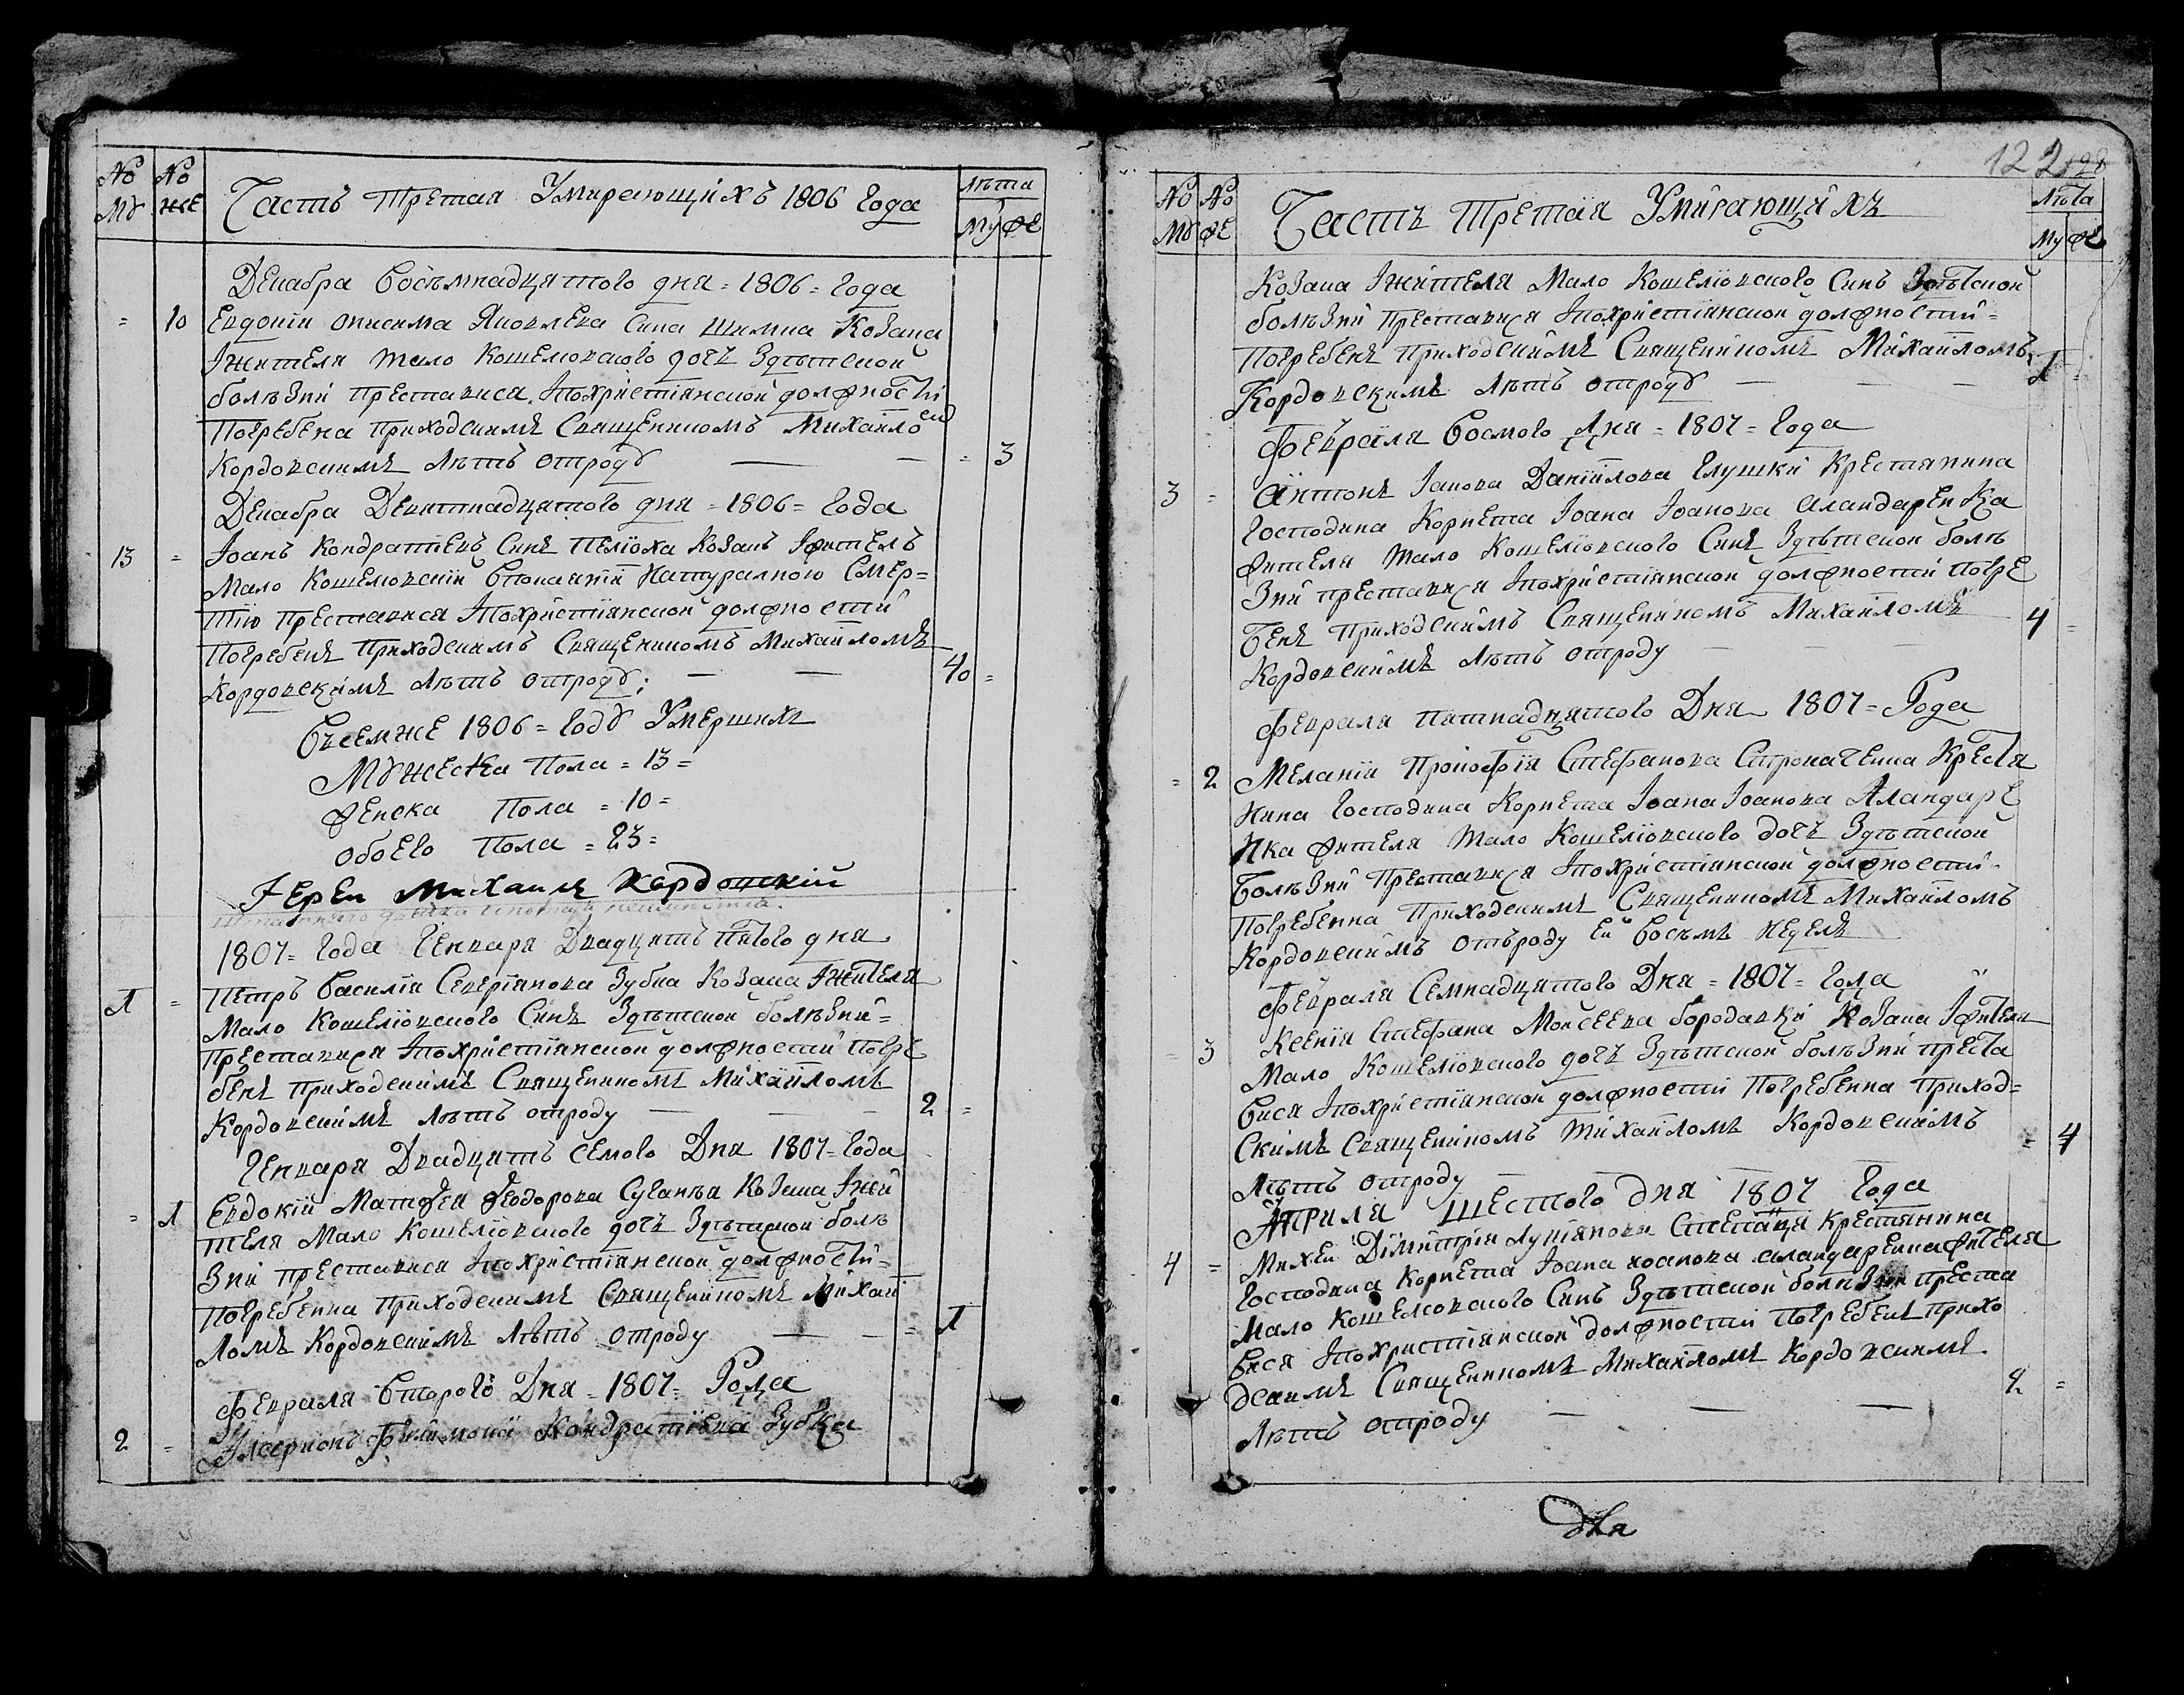 No No Часть третая Умирающихъ 1806 года лѣта
Му же Му фе
Декабра восъмнадцятого дня = 1806 = года
= 10 Евдокіи Онисима Яковлева сина Шимка козака
Іжителя мало кошелювского дочъ Здѣтской
болѣзни преставися, Іпохристіанской должности
Погребена приходскимъ Священикомъ Михайло
Кордовскимъ лѣтъ отроду — — = 3
Декабра Деватнадцятого дня = 1806 = года
13 = Іоанъ Кондратіевъ Синъ Пеліоха козакъ Іжителъ
Мало Кошелювскій Спокаяніи Натуралною Смер=
тію преставися Іпохристіанской должности
Погребенъ Приходскимъ Священикомъ Михайломъ
Кордовскимъ лѣтъ отроду; — — 40 =
Всемже 1806 = году Умершихъ
Мужеска Пола = 13 =
Женска Пола = 10 =
Обоего Пола = 23 =
Іереи Михаилъ Кордовскій
1807 = года Генваря Двадцять пятого дня
1 = Петръ Василія Северіанова Зубка Козака Іжителя
Мало Кошеліовского Синъ Здѣтской болѣзни =
Преставися Іпохристіанской должности Погре
бенъ приходскимъ Священикомъ Михайломъ
Кордовскимъ лѣтъ отроду — — — 2 =
Генваря Двадцять семого Дня 1807 = года
= 1 Евдокій Матфея Феодорова Козака Іжи
теля Мало Кошеліовского дочъ Здѣтской болѣ
зни преставися Іпохристіанской должности =
Погребенна Приходскимъ Священикомъ Михаи
ломъ Кордовскимъ лѣтъ отроду — — = 1
Февраля Второго Дня = 1807 = Года
2 = Іларионъ Филимона Кондратіева Зубка
122 128
No No Частъ Третая Умирающихъ Лѣта
Му фе Му фе
Козака Іжителя Мало Кошеліовского Синъ Здѣтской
болѣзни Преставися Іпохристіанской должности =
Погребенъ Приходскимъ Священикомъ Михайломъ
Кордовскимъ лѣтъ отроду — — — 1 =
Февраля восмого Дня = 1807 = года
3 = Антонъ Іакова Даніилова Глушки Крестянина
Господина Корнета Іоана Іоанова Аландаренка
жителя Мало Кошеліовского Синъ Здѣтской болѣ
зни преставися Іпохристіанской должности погре
бенъ Приходскимъ Священикомъ Михайломъ
Кордовскимъ лѣтъ отроду — — — 4 =
Февраля Пятнадцятого Дня 1807 = Года
= 2 Меланіи Прокофія Стефанова Крестя
нина Господина Корнета Іоана Іоанова Аландаре
нка жителя Мало Кошеліовского дочъ Здѣтской
болѣзни Преставися Іпохристіанской должности.
Погребенна Приходскимъ Священикомъ Михайломъ
Кордовскимъ отъроду ей восъмъ неделъ
Февраля Семнадцятого Дня = 1807 = года
= 3 Ксеніи Стефана Моисеева Бородавки Козака Іжителя
Мало Кошеліовского дочъ Здѣтской болѣзни преста
вися Іпохристіанской должности Погребенна Приход=
скимъ Священикомъ Михайломъ Кордовскимъ
Лѣтъ отроду = 4
Априля шестого дня 1807 года
4 = Михей Димитрія Лукіянова Крестянина
Господина Корнета Іоана Іоанова Аландаренка жителя
Мало Кошеліовского Синъ Здѣтской болѣзни преста
вися Іпохристіанской должности Погребенъ прихо
дскимъ Священикомъ Михайломъ Кордовскимъ
Лѣтъ отроду — — — 2 =